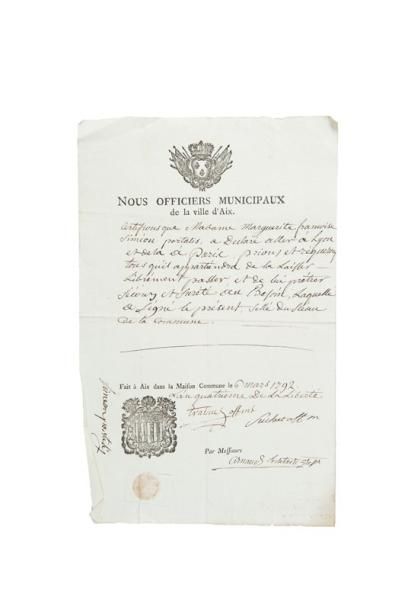 NOUS OFFICIERS MUNICIPAUX
de la ville d'Aix.
Certifions que Madame Marguerite françoise
Siméon portalis, a Declaré aller à Lyon
et de là à Paris, prions et requerons
tous qu'il appartiendra de la Laisser
Librement passer, et de lui prêter
secours et sureté au Besoin, Laquelle
a signé le présent, scélé du sceau
de la Commune.
Fait à Aix dans la Maison Commune le 6 mars 1792
L'an quatrieme De La Liberté
off mal
off m
Par Messieurs